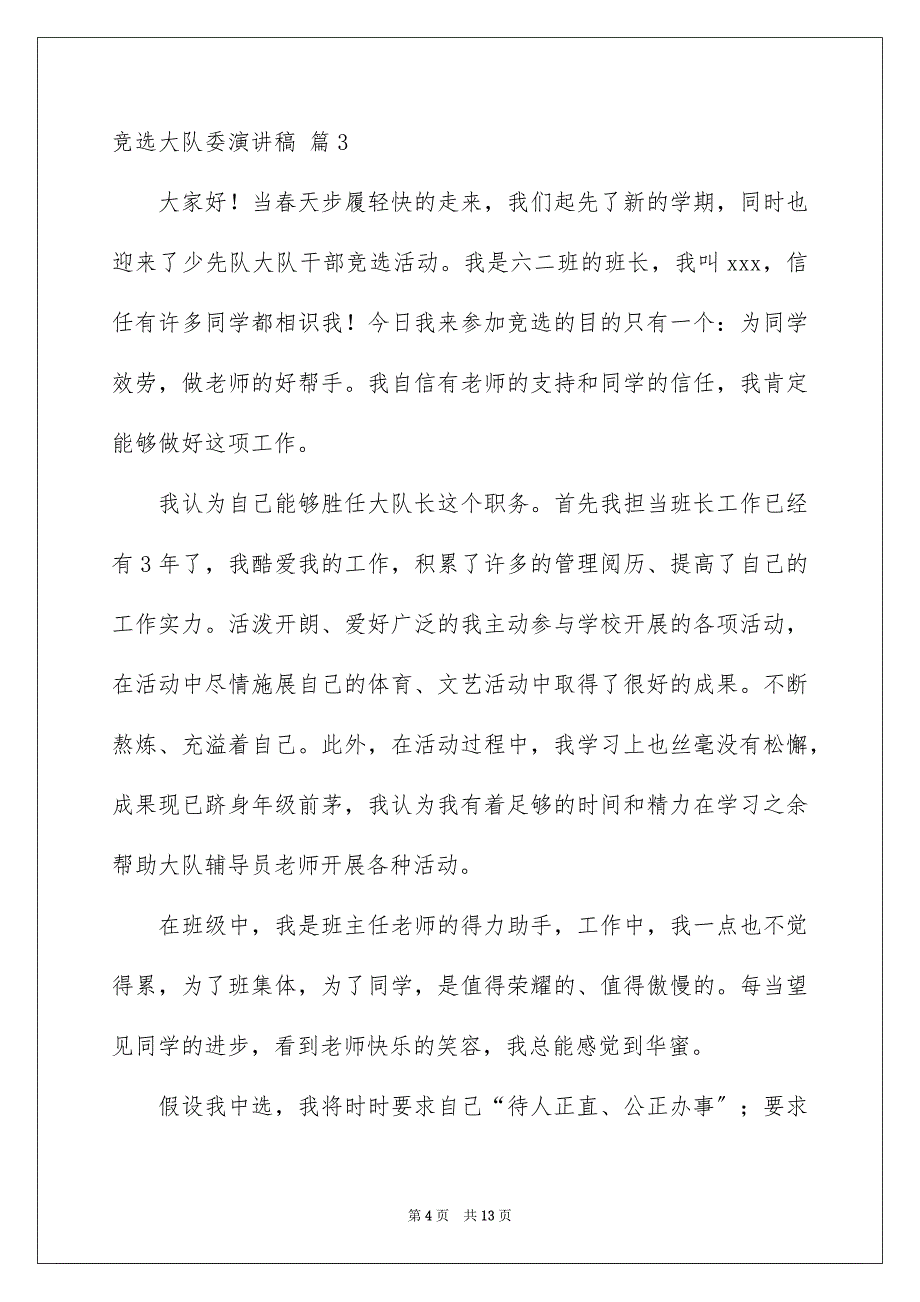 竞选大队委演讲稿 篇3
大家好！当春天步履轻快的走来，我们起先了新的学期，同时也
迎来了少先队大队干部竞选活动。我是六二班的班长，我叫 xxx，信
任有许多同学都相识我！今日我来参加竞选的目的只有一个：为同学
效劳，做老师的好帮手。我自信有老师的支持和同学的信任，我肯定
能够做好这项工作。
我认为自己能够胜任大队长这个职务。首先我担当班长工作已经
有3年了，我酷爱我的工作，积累了许多的管理阅历、提高了自己的
工作实力。活泼开朗、爱好广泛的我主动参与学校开展的各项活动，
在活动中尽情施展自己的体育、文艺活动中取得了很好的成果。不断
熬炼、充溢着自己。此外，在活动过程中，我学习上也丝毫没有松懈，
成果现已跻身年级前茅，我认为我有着足够的时间和精力在学习之余
帮助大队辅导员老师开展各种活动。
在班级中，我是班主任老师的得力助手，工作中，我一点也不觉
得累，为了班集体，为了同学，是值得荣耀的、值得傲慢的。每当望
见同学的进步，看到老师快乐的笑容，我总能感觉到华蜜。
假设我中选，我将时时要求自己“待人正直、公正办事〞；要求
第 4 页 共 13 页